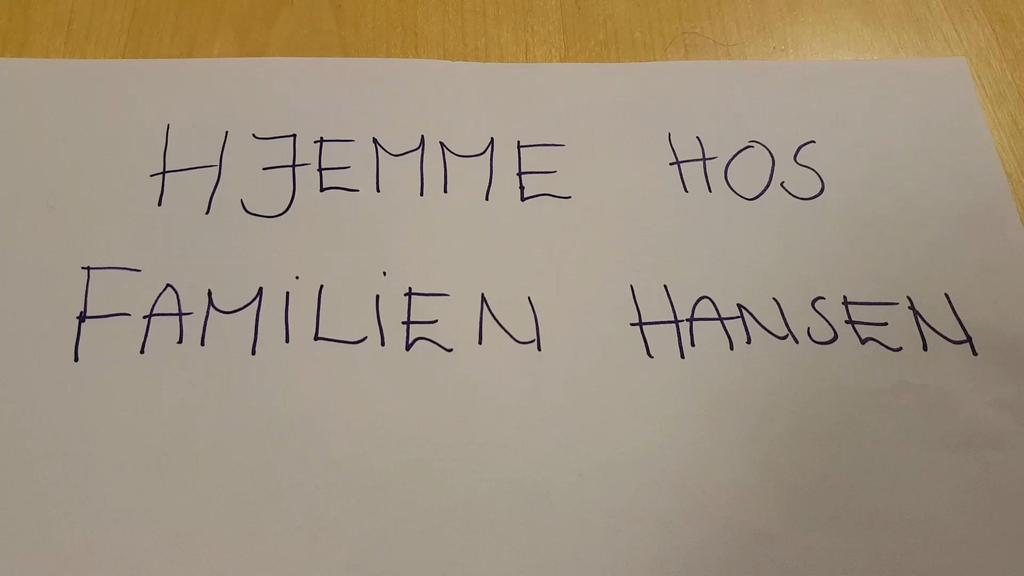 HJEMME HOS
FAMILIEN HANSEN